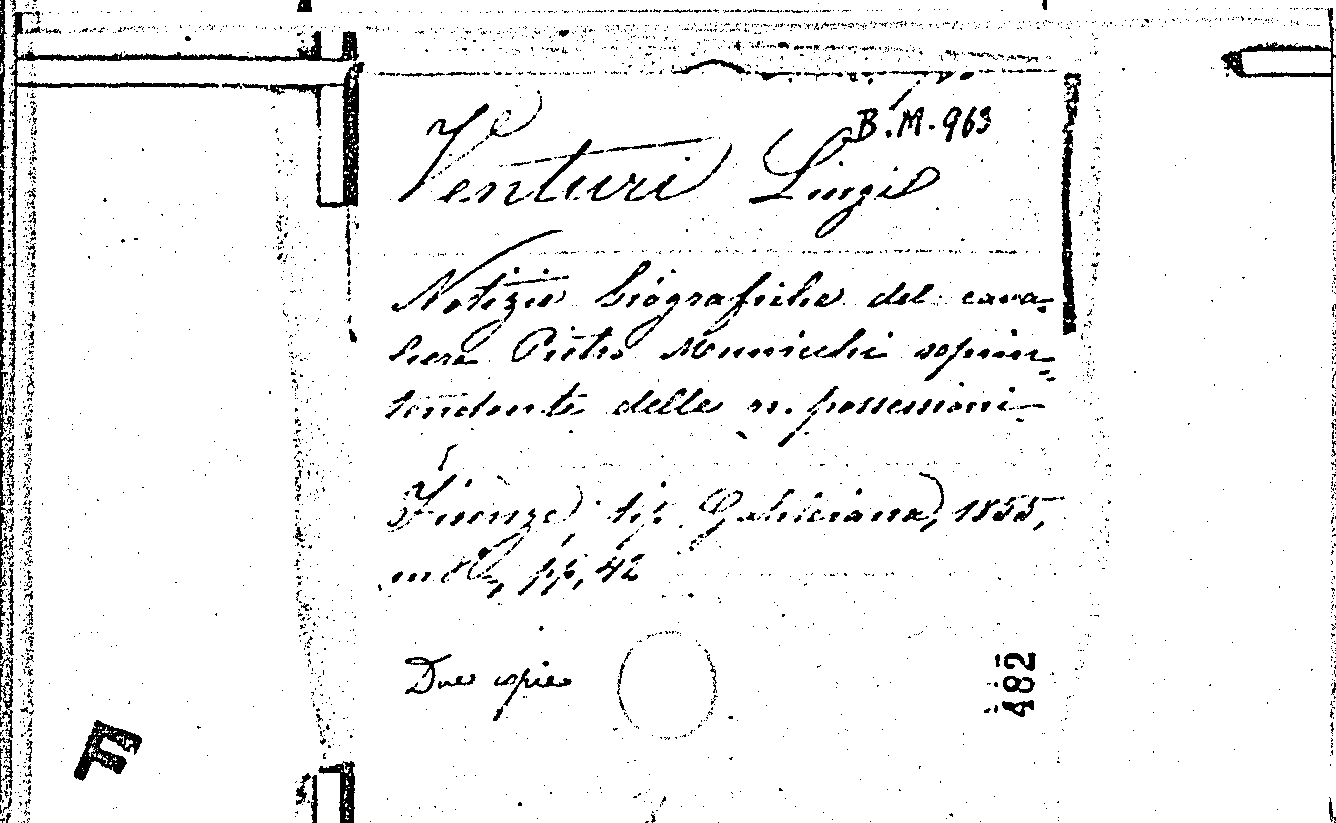 B.M. 963
Venturi Luigi
Notizie biografiche del cava-
liere Pietro Municchi soprin-
tendente delle rr. possessioni
Firenze, tip. Galileiana, 1855,
in 8º, pp. 42
Due copie
482
F